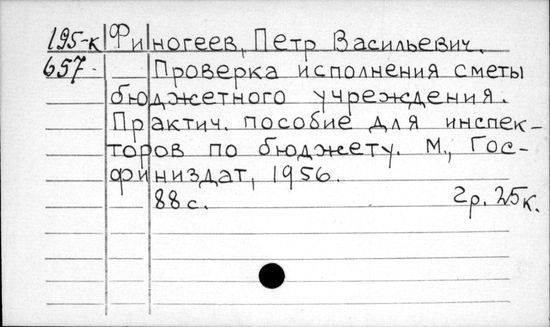 195-к Финогеев, Петр Васильевич.
657. Проверка исполнения сметы
бюджетного учреждения.
Практич. пособие для инспек-
торов по бюджету. М., Гос-
финиздат, 1956.
88 с. 2р. 25к.